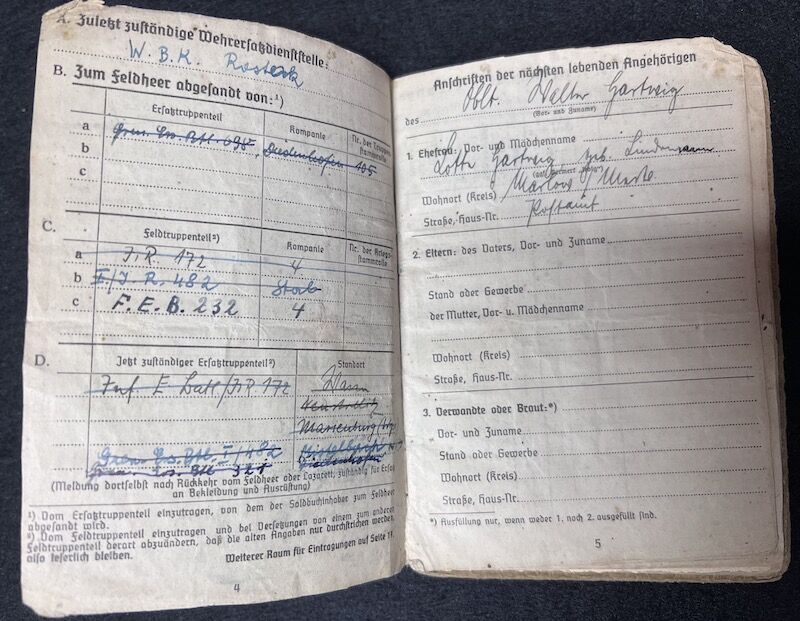 A. Zuletzt zuständige Wehrersatzdienststelle:
W.B.K. Rostock
B. Zum Feldheer abgesandt von:¹)
Ersatztruppenteil Kompanie Nr. der Truppenstammrolle
a Gren. Ers. Btl. Diedenhofen 105
b
c
C.
Feldtruppenteil²) Kompanie Nr. der Kriegsstammrolle
a J.R. 172 4
b II/J.R. 482 Stab
c F.E.B. 232 4
D.
Jetzt zuständiger Ersatztruppenteil²) Standort
Inf. E Batl/JR 172
Neustrelitz
Marienburg
Gren. Ers. Btl. I/482
Gren. Ers. Btl 321 Diedenhofen
(Meldung dortselbst nach Rückkehr vom Feldheer oder Lazarett, zuständig für Ersatz
an Bekleidung und Ausrüstung)
¹) Vom Ersatztruppenteil einzutragen, von dem der Soldbuchinhaber zum Feldheer
abgesandt wird.
²) Vom Feldtruppenteil einzutragen und bei Versetzungen von einem zum anderen
Feldtruppenteil derart abzuändern, daß die alten Angaben nur durchstrichen werden,
also leserlich bleiben.
Weiterer Raum für Eintragungen auf Seite 17.
4
Anschriften der nächsten lebenden Angehörigen
des Oblt. Walter Hartwig
(Vor- und Zuname)
1. Ehefrau: Vor- und Mädchenname
Lotte Hartwig, geb. Lindemann
Wohnort (Kreis) Marlow /
Straße, Haus-Nr. Postamt
2. Eltern: des Vaters, Vor- und Zuname
Stand oder Gewerbe
der Mutter, Vor- u. Mädchenname
Wohnort (Kreis)
Straße, Haus-Nr.
3. Verwandte oder Braut:*)
Vor- und Zuname
Stand oder Gewerbe
Wohnort (Kreis)
Straße, Haus-Nr.
*) Ausfüllung nur, wenn weder 1. noch 2. ausgefüllt sind.
5